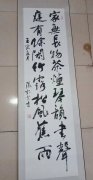 家無長物茶煙琴韻書聲
庭有餘閒竹露松風蕉雨